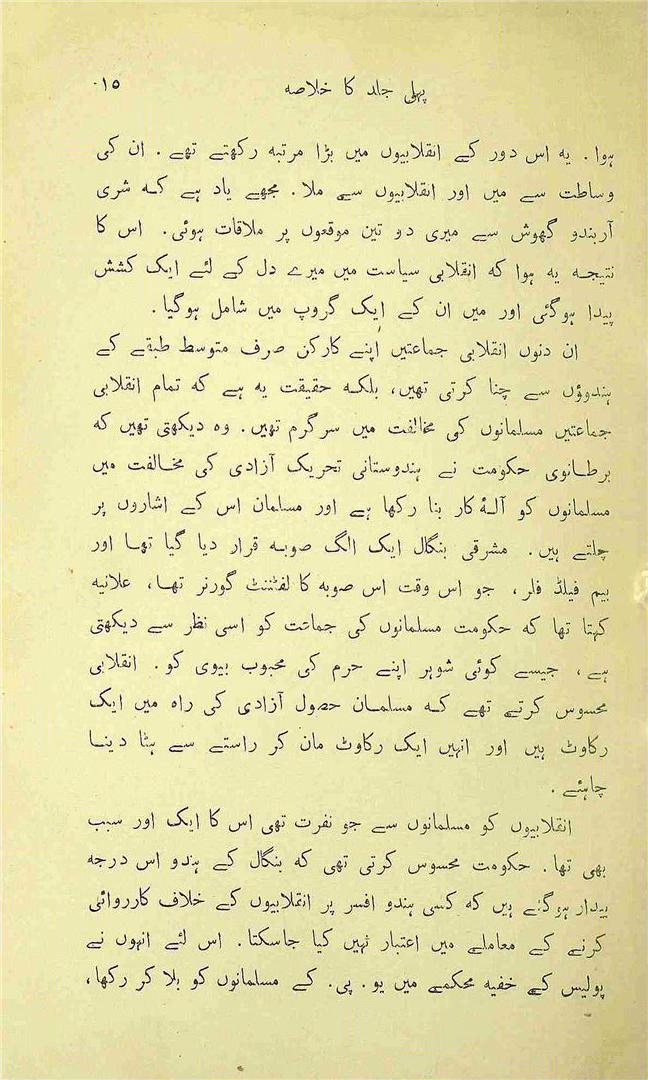 پہلی جلد کا خلاصہ ۱۵
ہوا ۔ یہ اس دور کے انقلابیوں میں بڑا مرتبہ رکھتے تھے ۔ ان کی
وساطت سے میں اور انقلابیوں سے ملا ۔ مجھے یاد ہے کہ شری
آربندو گھوش سے میری دو تین موقعوں پر ملاقات ہوئی ۔ اس کا
نتیجہ یہ ہوا کہ انقلابی سیاست میں میرے دل کے لئے ایک کشش
پیدا ہوگئی اور میں ان کے ایک گروپ میں شامل ہوگیا ۔
ان دنوں انقلابی جماعتیں اپنے کارکن صرف متوسط طبقے کے
ہندوؤں سے چنا کرتی تھیں، بلکہ حقیقت یہ ہے کہ تمام انقلابی
جماعتیں مسلمانوں کی مخالفت میں سرگرم تھیں ۔ وہ دیکھتی تھیں کہ
برطانوی حکومت نے ہندوستانی تحریک آزادی کی مخالفت میں
مسلمانوں کو آلۂ کار بنا رکھا ہے اور مسلمان اس کے اشاروں پر
چلتے ہیں ۔ مشرقی بنگال ایک الگ صوبہ قرار دیا گیا تھا اور
بیم فیلڈ فلر، جو اس وقت اس صوبہ کا لفٹننٹ گورنر تھا، علانیہ
کہتا تھا کہ حکومت مسلمانوں کی جماعت کو اسی نظر سے دیکھتی
ہے، جیسے کوئی شوہر اپنے حرم کی محبوب بیوی کو ۔ انقلابی
محسوس کرتے تھے کہ مسلمان حصول آزادی کی راہ میں ایک
رکاوٹ ہیں اور انہیں ایک رکاوٹ مان کر راستے سے ہٹا دینا
چاہئے ۔
انقلابیوں کو مسلمانوں سے جو نفرت تھی اس کا ایک اور سبب
بھی تھا ۔ حکومت محسوس کرتی تھی کہ بنگال کے ہندو اس درجہ
بیدار ہوگئے ہیں کہ کسی ہندو افسر پر انقلابیوں کے خلاف کارروائی
کرنے کے معاملے میں اعتبار نہیں کیا جاسکتا ۔ اس لئے انہوں نے
پولیس کے خفیہ محکمے میں یو ۔ پی ۔ کے مسلمانوں کو بلا کر رکھا،